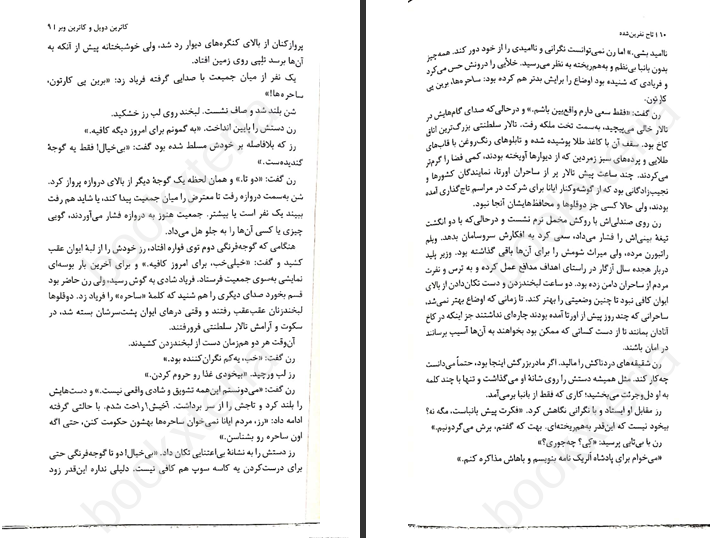 کاترین دویل و کاترین وبر | ۹
پروازکنان از بالای کنگره‌های دیوار رد شد، ولی خوشبختانه پیش از آنکه به
آن‌ها برسد تلپی روی زمین افتاد.
یک نفر از میان جمعیت با صدایی گرفته فریاد زد: «برین پی کارتون،
ساحره‌ها!»
شن بلند شد و صاف نشست. لبخند روی لب رز خشکید.
رن دستش را پایین انداخت. «به گمونم برای امروز دیگه کافیه.»
رز که بلافاصله بر خودش مسلط شده بود گفت: «بی‌خیال! فقط یه گوجهٔ
گندیده‌ست.»
رن گفت: «دو تا.» و همان لحظه یک گوجهٔ دیگر از بالای دروازه پرواز کرد.
شن به‌سمت دروازه رفت تا معترض را میان جمعیت پیدا کند، یا شاید هم رفت
ببیند یک نفر است یا بیشتر. جمعیت هنوز به دروازه فشار می‌آوردند، گویی
چیزی یا کسی آن‌ها را به جلو هل می‌داد.
هنگامی که گوجه‌فرنگی دوم توی فواره افتاد، رز خودش را از لبهٔ ایوان عقب
کشید و گفت: «خیلی‌خب، برای امروز کافیه.» و برای آخرین بار بوسه‌ای
نمایشی به‌سوی جمعیت فرستاد. فریاد شادی به گوش رسید، ولی رن حاضر بود
قسم بخورد صدای دیگری را هم شنید که کلمهٔ «ساحره» را فریاد زد. دوقلوها
لبخندزنان عقب‌عقب رفتند و وقتی درهای ایوان پشت‌سرشان بسته شد، در
سکوت و آرامش تالار سلطنتی فرورفتند.
آن‌وقت هر دو هم‌زمان دست از لبخندزدن کشیدند.
رن گفت: «خب، یه‌کم نگران‌کننده بود.»
رز لب ورچید. «بیخودی غذا رو حروم کردن.»
رن گفت: «می‌دونستم این‌همه تشویق و شادی واقعی نیست.» و دست‌هایش
را بلند کرد و تاجش را از سر برداشت. «آخیش! راحت شدم. با حالتی گرفته
ادامه داد: «رز، مردم ایانا نمی‌خوان ساحره‌ها بهشون حکومت کنن، حتی اگه
اون ساحره رو بشناسن.»
رز دستش را به نشانهٔ بی‌اعتنایی تکان داد. «بی‌خیال! دو تا گوجه‌فرنگی حتی
برای درست‌کردن یه کاسه سوپ هم کافی نیست. دلیلی نداره این‌قدر زود
۱۰ | تاج نفرین‌شده
ناامید بشی.» اما رن نمی‌توانست نگرانی و ناامیدی را از خود دور کند. همه‌چیز
بدون بانبا بی‌نظم و به‌هم‌ریخته به نظر می‌رسید. خلأیی را درونش حس می‌کرد
و فریادی که شنیده بود اوضاع را برایش بدتر هم کرده بود: ساحره‌ها، برین پی
کارتون.
رن گفت: «فقط سعی دارم واقع‌بین باشم.» و درحالی‌که صدای گام‌هایش در
تالار خالی می‌پیچید، به‌سمت تخت ملکه رفت. تالار سلطنتی بزرگ‌ترین اتاق
کاخ بود. سقف آن با کاغذ طلا پوشیده شده و تابلوهای رنگ‌روغن با قاب‌های
طلایی و پرده‌های سبز زمردین که از دیوارها آویخته بودند، کمی فضا را گرم‌تر
می‌کردند. چند ساعت پیش تالار پر از ساحران اورتا، نمایندگان کشورها و
نجیب‌زادگانی بود که از گوشه‌وکنار ایانا برای شرکت در مراسم تاج‌گذاری آمده
بودند، ولی حالا کسی جز دوقلوها و محافظ‌هایشان آنجا نبود.
رن روی صندلی‌اش با روکش مخمل نرم نشست و درحالی‌که با دو انگشت
تیغهٔ بینی‌اش را فشار می‌داد، سعی کرد به افکارش سروسامان بدهد. ویلم
راتبورن مرده، ولی میراث شومش را برای آن‌ها باقی گذاشته بود. وزیر پلید
دربار هجده سال آزگار در راستای اهداف مدافع عمل کرده و به ترس و نفرت
مردم از ساحران دامن زده بود. دو ساعت لبخندزدن و دست تکان‌دادن از بالای
ایوان کافی نبود تا چنین وضعیتی را بهتر کند. تا زمانی که اوضاع بهتر نمی‌شد،
ساحرانی که چند روز پیش از اورتا آمده بودند چاره‌ای نداشتند جز اینکه در کاخ
آنادان بمانند تا از دست کسانی که ممکن بود بخواهند به آن‌ها آسیب برسانند
در امان باشند.
رن شقیقه‌های دردناکش را مالید. اگر مادربزرگش اینجا بود، حتماً می‌دانست
چه‌کار کند. مثل همیشه دستش را روی شانهٔ او می‌گذاشت و تنها با چند کلمه
به او دل‌وجرئت می‌بخشید؛ کاری که فقط از بانبا برمی‌آمد.
رز مقابل او ایستاد و با نگرانی نگاهش کرد. «فکرت پیش بانباست، مگه نه؟
بیخود نیست که این‌قدر به‌هم‌ریخته‌ای. بهت که گفتم، برش می‌گردونیم.»
رن با بی‌تابی پرسید: «کِی؟ چه‌جوری؟»
«می‌خوام برای پادشاه آلریک نامه بنویسم و باهاش مذاکره کنم.»